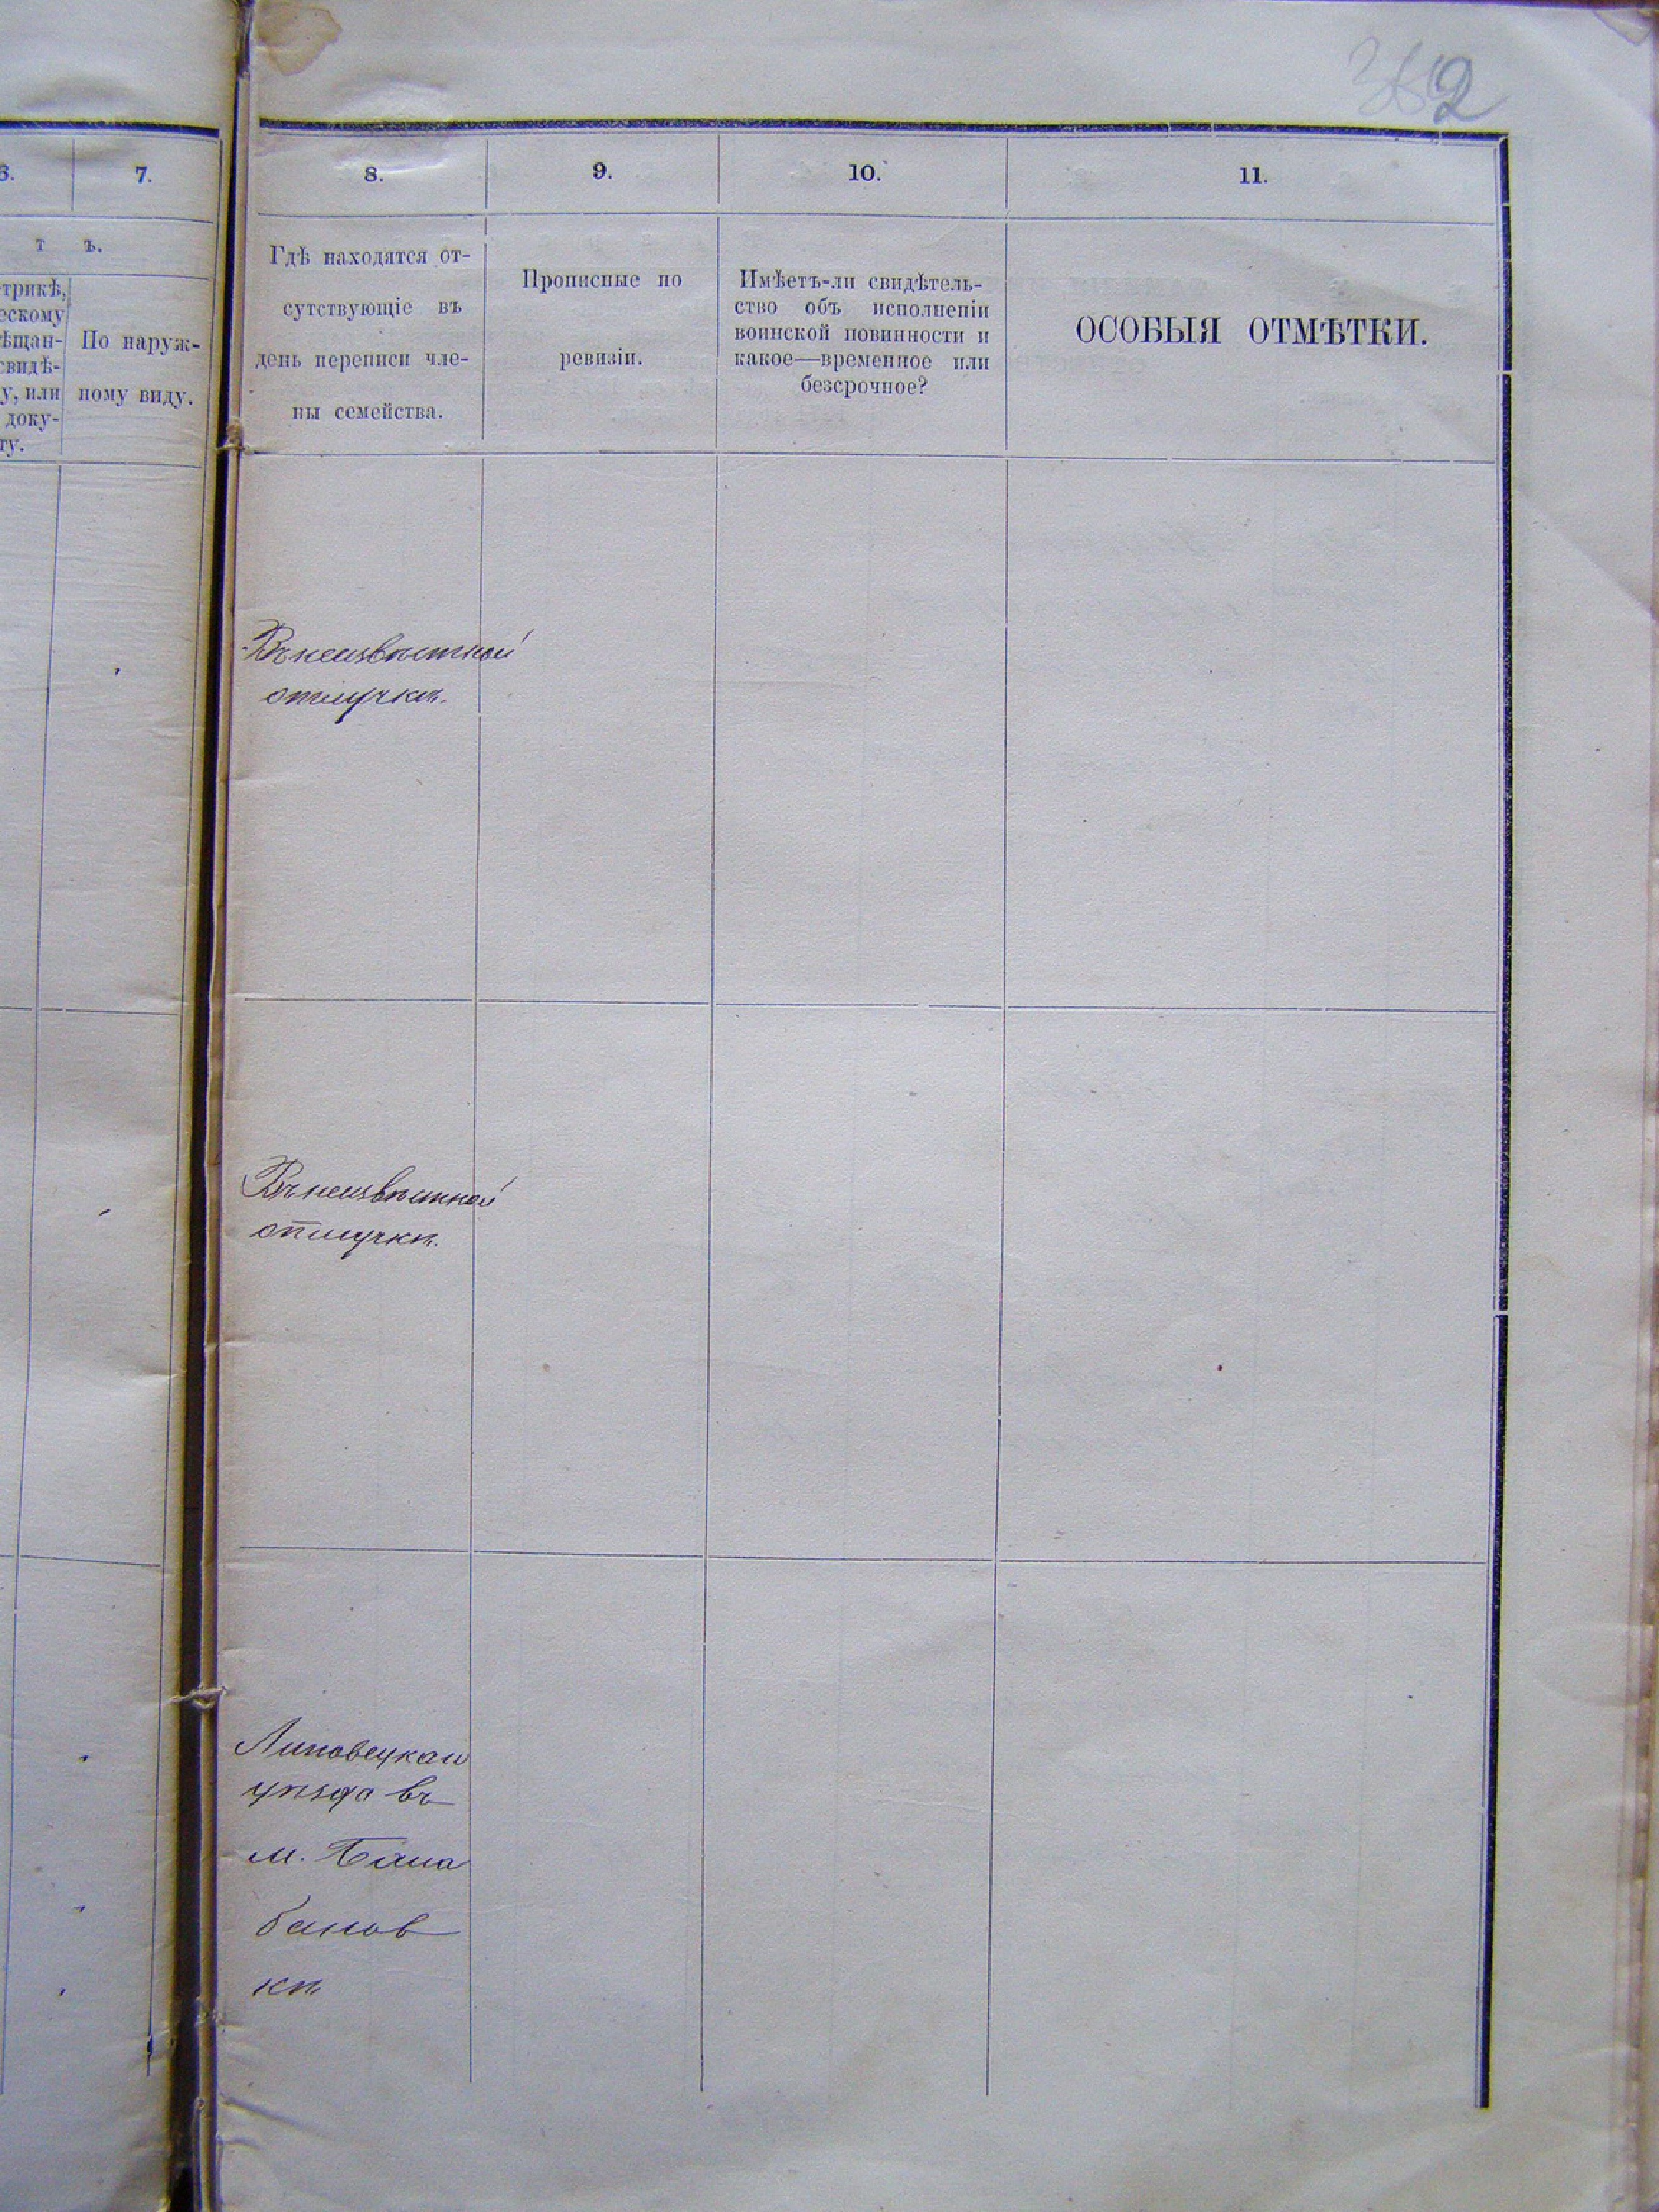 362
6.
7.
8.
9.
10.
11.
т ъ.
трикѣ,
ескому
ѣщан-
свидѣ-
у, или
доку-
ту.
По наруж-
ному виду.
Гдѣ находятся от-
сутствующіе въ
день переписи чле-
ны семейства.
Прописные по
ревизіи.
Имѣетъ-ли свидѣтель-
ство объ исполненіи
воинской повинности и
какое—временное или
безсрочное?
ОСОБЫЯ ОТМѢТКИ.
Въ неизвѣстной
отлучкѣ.
Въ неизвѣстной
отлучкѣ.
Липовецкаго
уѣзда въ
м. Бала
банов
кѣ